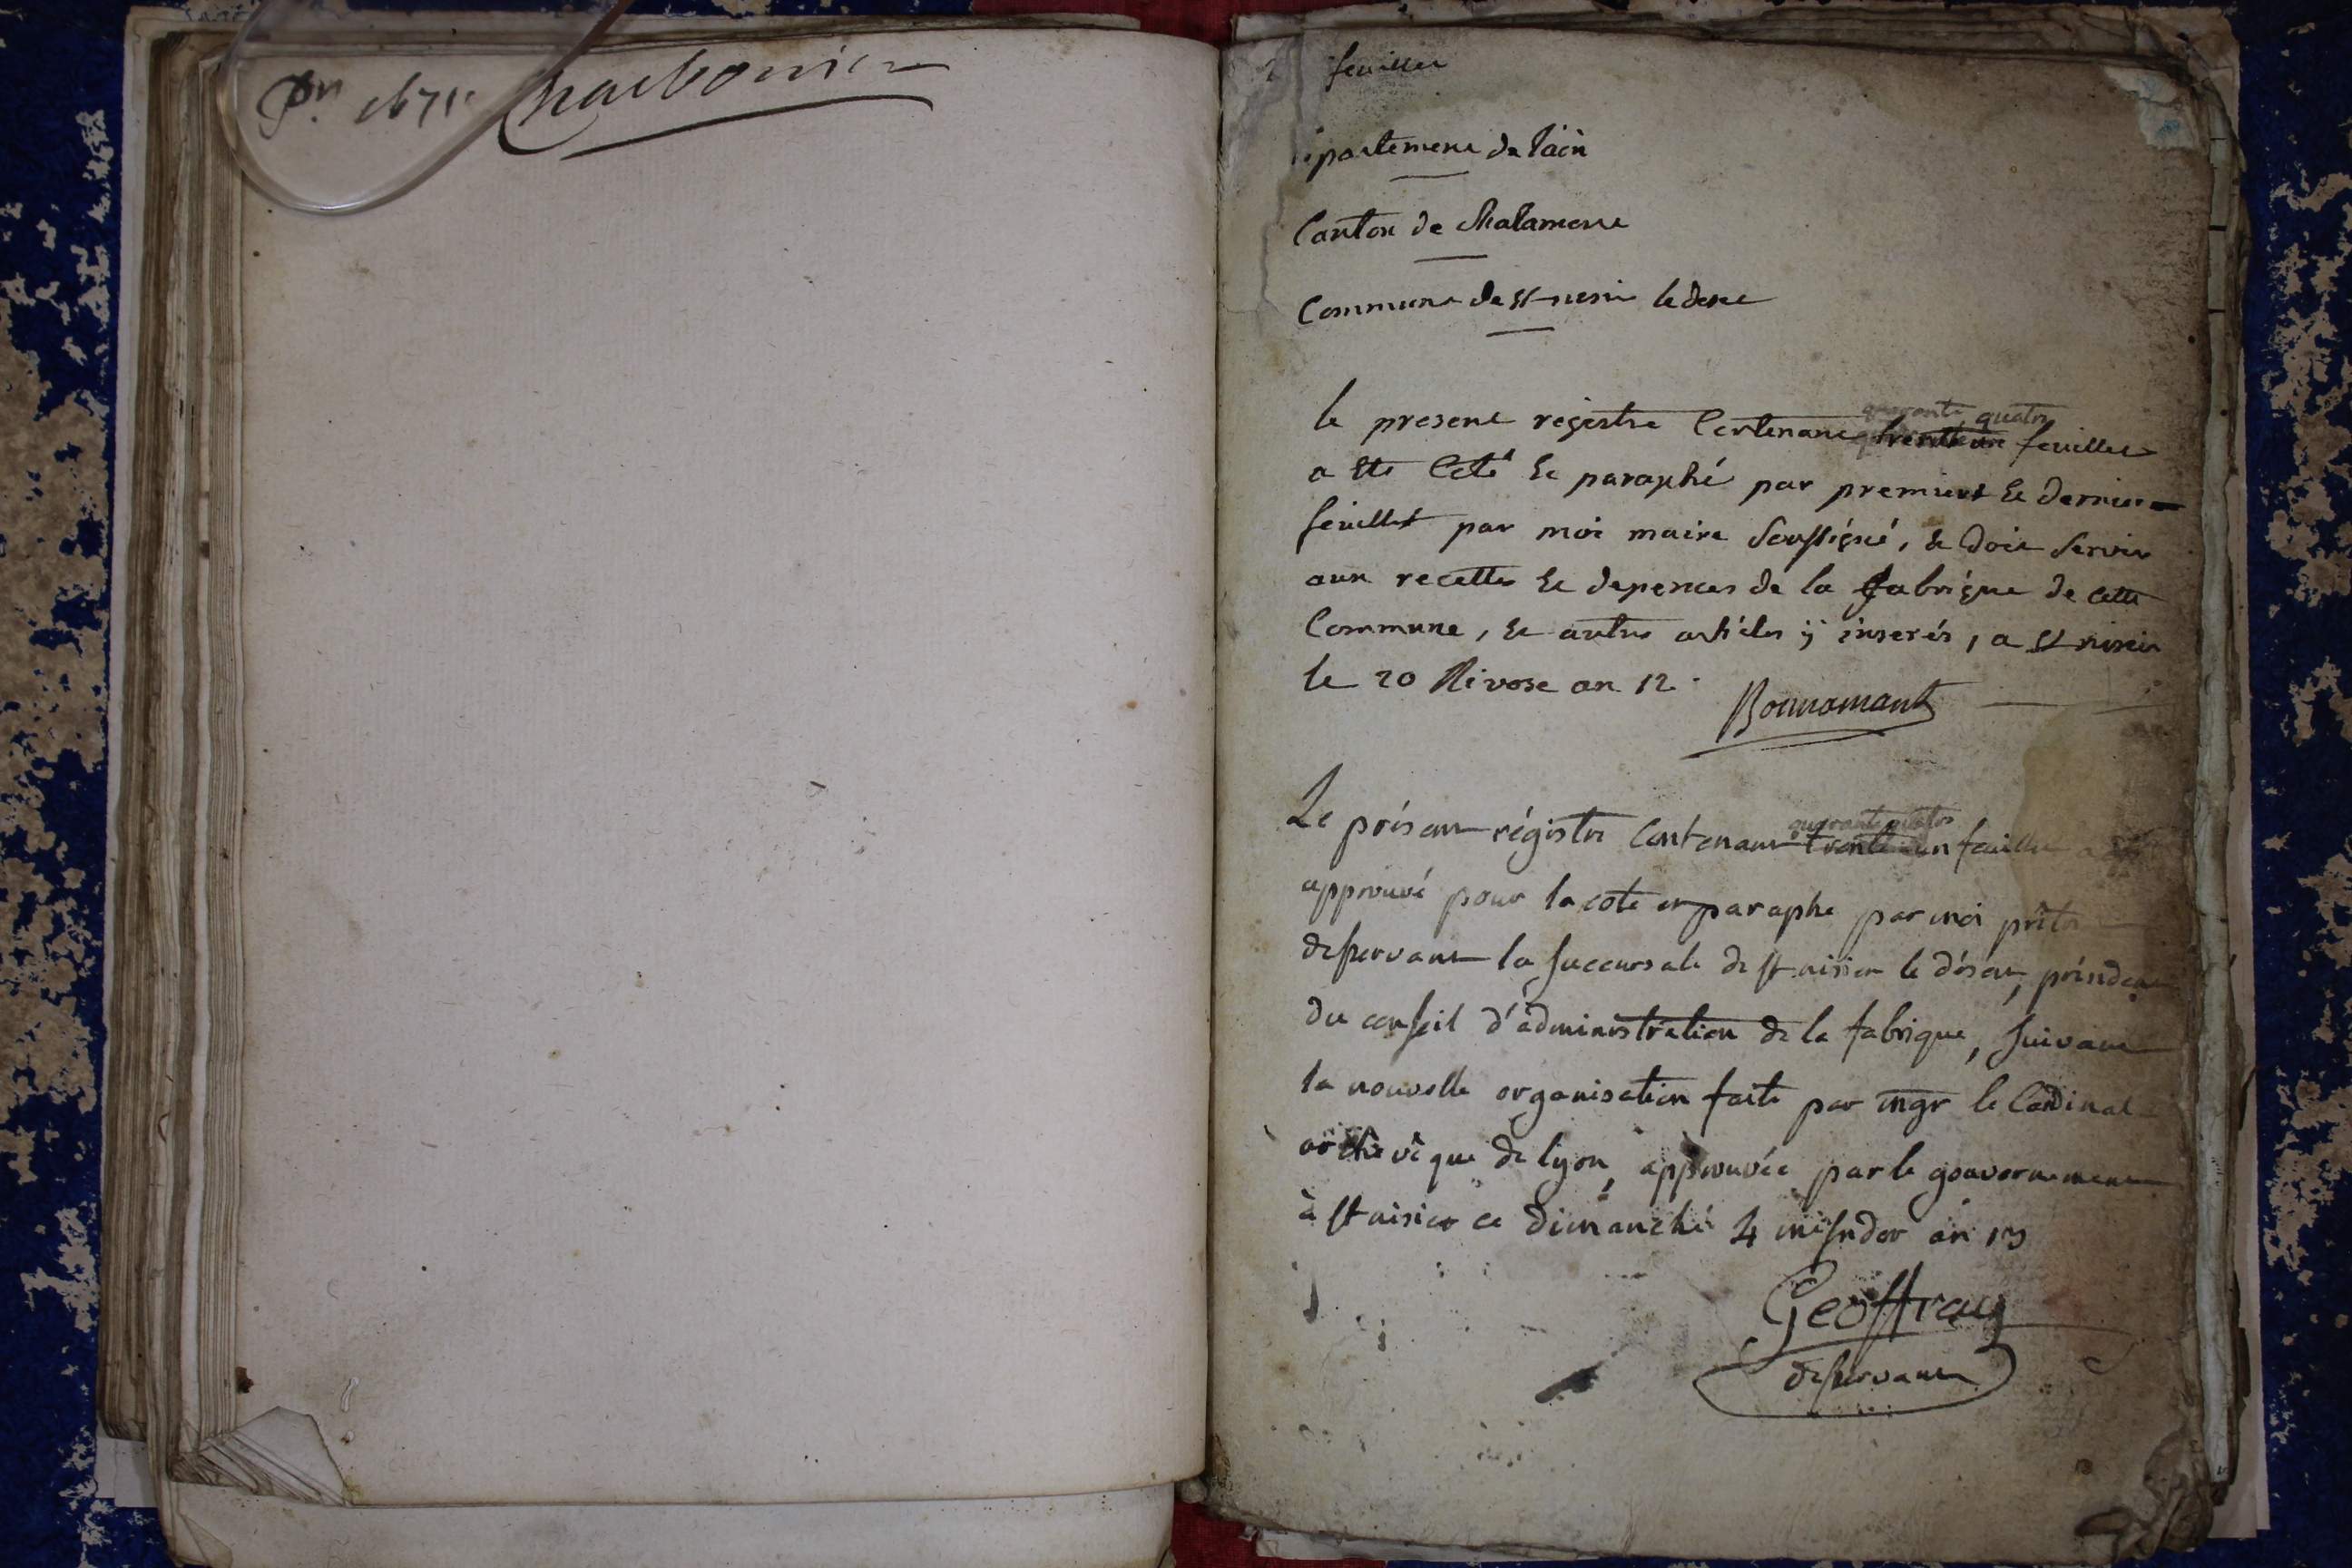 Charbonier
feuillet
epartement de l'ain
Canton de Chalamont
Commune de st nisié le desert
le present registre Contenant quarante quatre feuillets
a ete Coté et paraphé par premier et dernier
feuillet par moi maire soussigné, et doit servir
aux recettes et depences de la fabrique de cette
Commune, et autres articles ÿ inserés, a st nisier
le 20 Nivose an 12.
Bonnamant
Le présent régistre Contenant quarante quatre feuillets a
approuvé pour la cote et paraphe par moi prêtre
desservant la succursale de st nisier le désert, président
du conseil d'administration de la fabrique, suivant
la nouvelle organisation faite par mgr le Cardinal
archevêque de lyon, approuvée par le gouvernement
à st nisier ce dimanche 4 messidor an 13
Geoffray
desservant